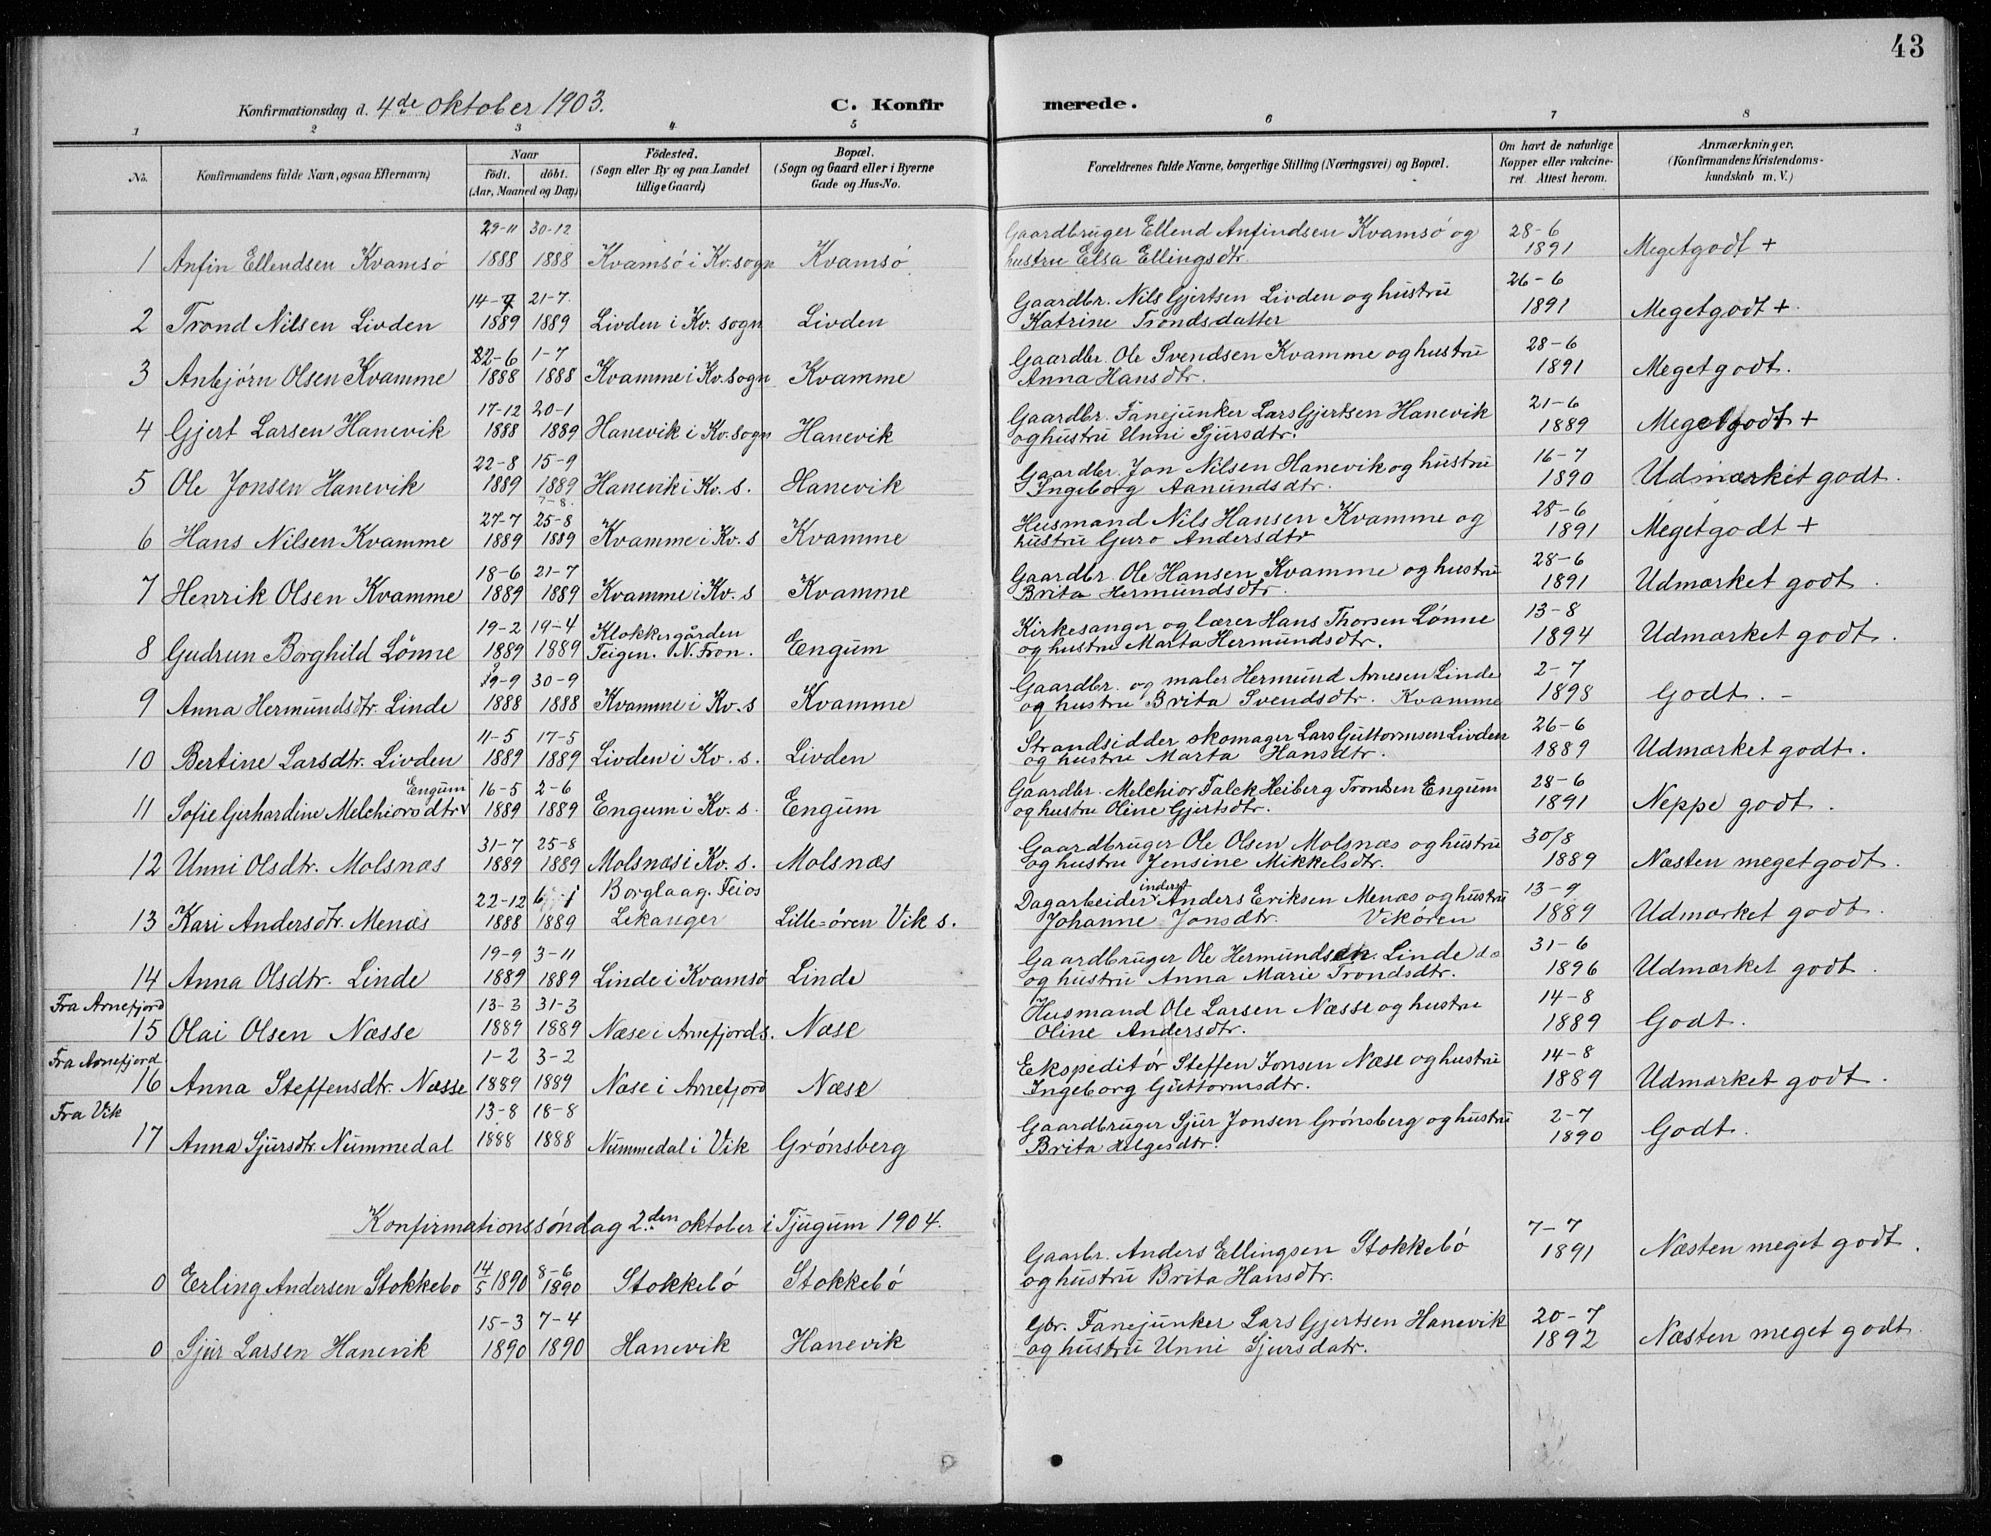 43
Konfirmationsdag d. 4de oktober 1903.
C. Konfirmerede.
1 2 3 4 5 6 7 8
No. Konfirmandens fulde Navn, ogsaa Efternavn) Naar födt. döbt. (Aar, Maaned og Dag) Födested. (Sogn eller By og paa Landet tillige Gaard) Bopæl. (Sogn og Gaard eller i Byerne Gade og Hus-No. Forældrenes fulde Navne, borgerlige Stilling (Næringsvei) og Bopæl. Om havt de naturlige Kopper eller vakcineret Attest herom. Anmærkninger. (Konfirmandens Kristendomskundskab m. V.)
29-11 30-12 Gaardbruger Ellend Anfindsen Kvamsö og 28-6
1 Anfin Ellendsen Kvamsö 1888 1888 Kvamsö i Kv. sogn Kvamsö hustru Elsa Ellingsdtr. 1891 Meget godt +
14-7 21-7 Gaardbr. Nils Gjertsen Livden og hustru 26-6
2 Trond Nilsen Livden 1889 1889 Livden i Kv. sogn Livden Katrine Trondsdatter 1891 Meget godt +
22-6 1-7 Gaardbr. Ole Svendsen Kvamme og hustru 28-6
3 Anbjörn Olsen Kvamme 1888 1888 Kvamme i Kv. sogn Kvamme Anna Hansdtr. 1891 Meget godt.
17-12 20-1 Gaardbr. Fanejunker Lars Gjertsen Hanevik 21-6
4 Gjert Larsen Hanevik 1888 1889 Hanevik i Kv. sogn Hanevik og hustru Unni Sjursdtr. 1889 Meget godt +
22-8 15-9 Gaardbr. Jon Nilsen Hanevik og hustru 16-7
5 Ole Jonsen Hanevik 1889 1889 Hanevik i Kv. s. Hanevik Ingeborg Aamundsdtr. 1890 Udmærket godt.
7-8.
27-7 25-8 Husmand Nils Hansen Kvamme og 28-6
6 Hans Nilsen Kvamme 1889 1889 Kvamme i Kv. s Kvamme hustru Guro Andersdtr 1891 Meget godt +
18-6 21-7 Gaardbr. Ole Hansen Kvamme og hustru 28-6
7 Henrik Olsen Kvamme 1889 1889 Kvamme i Kv. s Kvamme Brita Hermundsdtr. 1891 Udmærket godt.
19-2 19-4 Klokkergården Kirkesanger og lærer Hans Thorsen Lönne 13-8
8 Gudrun Borghild Lönne 1889 1889 Teigen. N. Fron. Engum og hustru Marta Hermundsdtr. 1894 Udmærket godt.
19-9 30-9 Gaardbr. og maler Hermund Arnesen Linde 2-7
9 Anna Hermundsdtr. Linde 1888 1888 Kvamme i Kv. s Kvamme og hustru Brita Svendsdtr. Kvamme 1898 Godt. -
11-5 17-5 Strandsidder skomager Lars Guttormsen Livden 26-6
10 Bertine Larsdtr. Livden 1889 1889 Livden i Kv. s. Livden og hustru Marta Hansdtr. 1889 Udmærket godt.
Engum 16-5 2-6 Gaardbr. Melchior Falck Heiberg Trondsen Engum 28-6
11 Sofie Gerhardine Melchiorsdtr 1889 1889 Engum i Kv. s. Engum og hustru Oline Gjertsdtr. 1891 Neppe godt.
31-7 25-8 Gaardbruger Ole Olsen Molsnæs og hustru 30/8
12 Unni Olsdtr. Molsnæs 1889 1889 Molsnæs i Kv. s. Molsnæs og hustru Jensine Mikkelsdtr. 1889 Næsten meget godt.
22-12 6-1 Borglaag. Feios Dagarbeider inderst Anders Eriksen Menæs og hustru 13-9
13 Kari Andersdtr. Menæs 1888 1889 Lekanger Lille-ören Vik s. Johanne Jonsdtr. Vikören 1889 Udmærket godt.
19-9 3-11 Gaardbruger Ole Hermundsen Linde 31-6
14 Anna Olsdtr. Linde 1889 1889 Linde i Kvamsö Linde og hustru Anna Marie Trondsdtr. 1896 Udmærket godt.
Fra Arnefjord 13-3 31-3 Husmand Ole Larsen Næsse og hustru 14-8
15 Olai Olsen Næsse 1889 1889 Næse i Arnefjord s. Næse Oline Andersdtr. 1889 Godt.
Fra Arnefjord 1-2 3-2 Ekspeditör Steffen Jonsen Næse og hustru 14-8
16 Anna Steffensdtr. Næsse 1889 1889 Næse i Arnefjord Næse Ingeborg Guttormsdtr. 1889 Udmærket godt.
Fra Vik 13-8 18-8 Gaardbruger Sjur Jonsen Grönsberg og hustru 2-7
17 Anna Sjursdtr. Nummedal 1888 1888 Nummedal i Vik Grönsberg Brita Helgesdtr. 1890 Godt.
Konfirmationssöndag 2.den oktober i Tjugum 1904.
14/5 8-6 Gaarbr. Anders Ellingsen Stokkebö 7-7
0 Erling Andersen Stokkebö 1890 1890 Stokkebö Stokkebö og hustru Brita Hansdtr. 1891 Næsten meget godt.
15-3 7-4 Gbr. Fanejunker Lars Gjertsen Hanevik 20-7
0 Sjur Larsen Hanevik 1890 1890 Hanevik Hanevik og hustru Unni Sjursdatr. 1892 Næsten meget godt